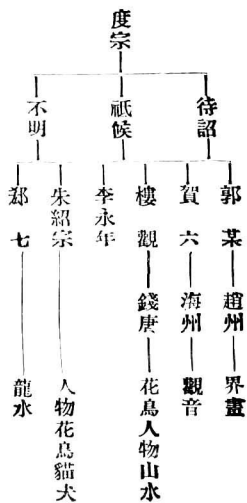 度宗
待詔
祇候
不明
郭某 趙州 界畫
賀六 海州 觀音
樓觀 錢唐 花鳥人物山水
李永年
朱紹宗 人物花鳥貓犬
七 龍水